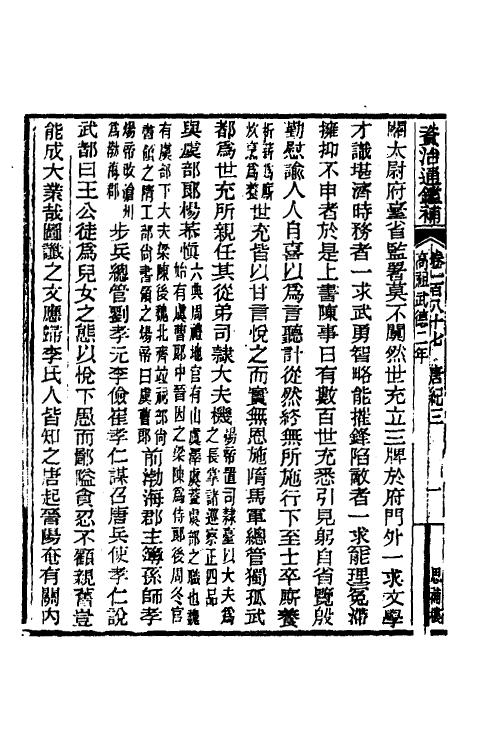 資治通鑑補 卷一百八十七 唐紀三 一 思補樓
高祖武德二年
關太尉府臺省監署莫不闐然世充立三牌於府門外一求文學
才識堪濟時務者一求武勇智略能摧鋒陷敵者一求能理冤滯
擁抑不申者於是上書陳事日有數百世充悉引見躬自省覽殷
勤慰諭人人自喜以爲言聽計從然終無所施行下至士卒廝養
析薪爲廝炊烹爲養世充皆以甘言悅之而實無恩施隋馬軍總管獨孤武
都爲世充所親任其從弟司隸大夫機煬帝置司隸臺以大夫爲之長掌諸巡察正四品
與虞部郎楊恭愼六典周禮地官有山虞澤虞蓋虞部之職也魏始有虞曹郎中晉因之梁陳爲侍郎後周冬官
有虞部下大夫梁陳後魏北齊竝祠部尙書領之隋工部尙書領之煬帝曰虞曹郎前渤海郡主簿孫師孝
煬帝改滄州爲渤海郡步兵總管劉孝元李儉崔孝仁謀召唐兵使孝仁說
武都曰王公徒爲兒女之態以悅下愚而鄙隘貪忍不顧親舊豈
能成大業哉圖讖之文應歸李氏人皆知之唐起晉陽奄有關內